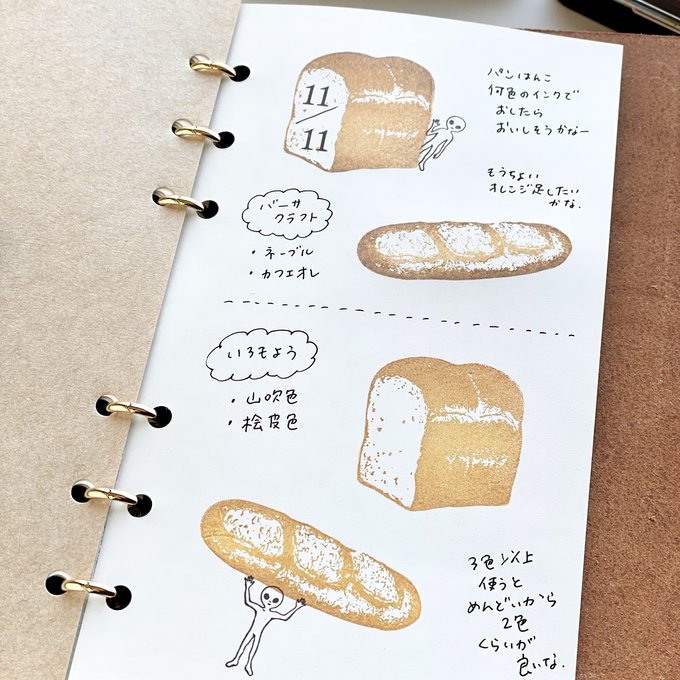 11
11
パンはんこ
何色のインクで
おしたら
おいしそうかなー
もうちょい
オレンジ足したい
かな.
バーサ
クラフト
・ネーブル
・カフェオレ
いろもよう
・山吹色
・桧皮色
3色以上
使うと
めんどいから
2色
くらいが
良いな.